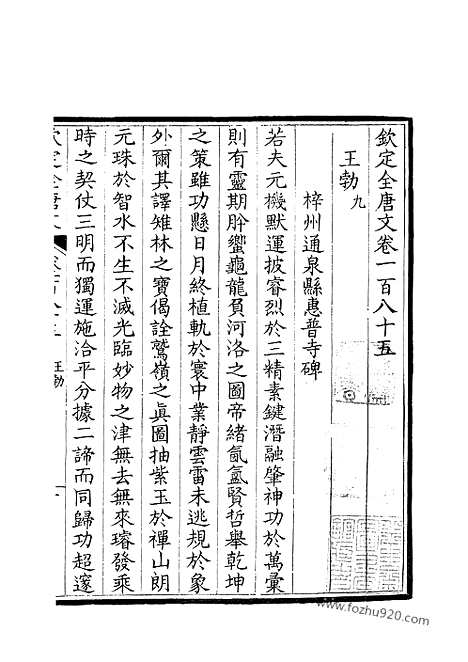 欽定全唐文卷一百八十五
王勃九
梓州通泉縣惠普寺碑
若夫元機默運披睿烈於三精素鍵潛融肇神功於萬彙
則有靈期肸蠁龜龍負河洛之圖帝緒氤氳賢哲舉乾坤
之策雖功懸日月終植軌於寰中業靜雲雷未逃規於象
外爾其譯雉林之寶偈詮鷲嶺之眞圖抽紫玉於禪山朗
元珠於智水不生不滅光臨妙物之津無去無來璿發乘
時之契仗三明而獨運施洽平分據二諦而同歸功超邃
欽定全唐文
王勃
一
www.fozhu920.com